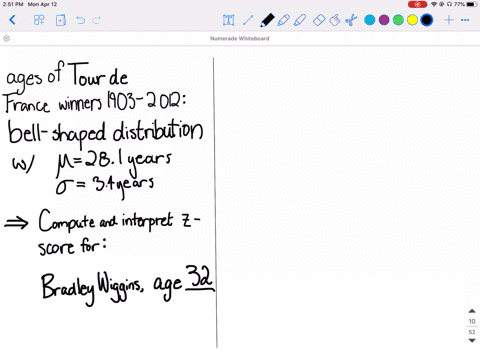 2:51 PM Mon Apr 12
77%
Numerade Whiteboard
ages of Tour de
France winners 1903-2012:
bell-shaped distribution
w/ μ=28.1 years
σ= 3.4 years
⇒ Compute and interpret z-
score for:
Bradley Wiggins, age 32
10
52